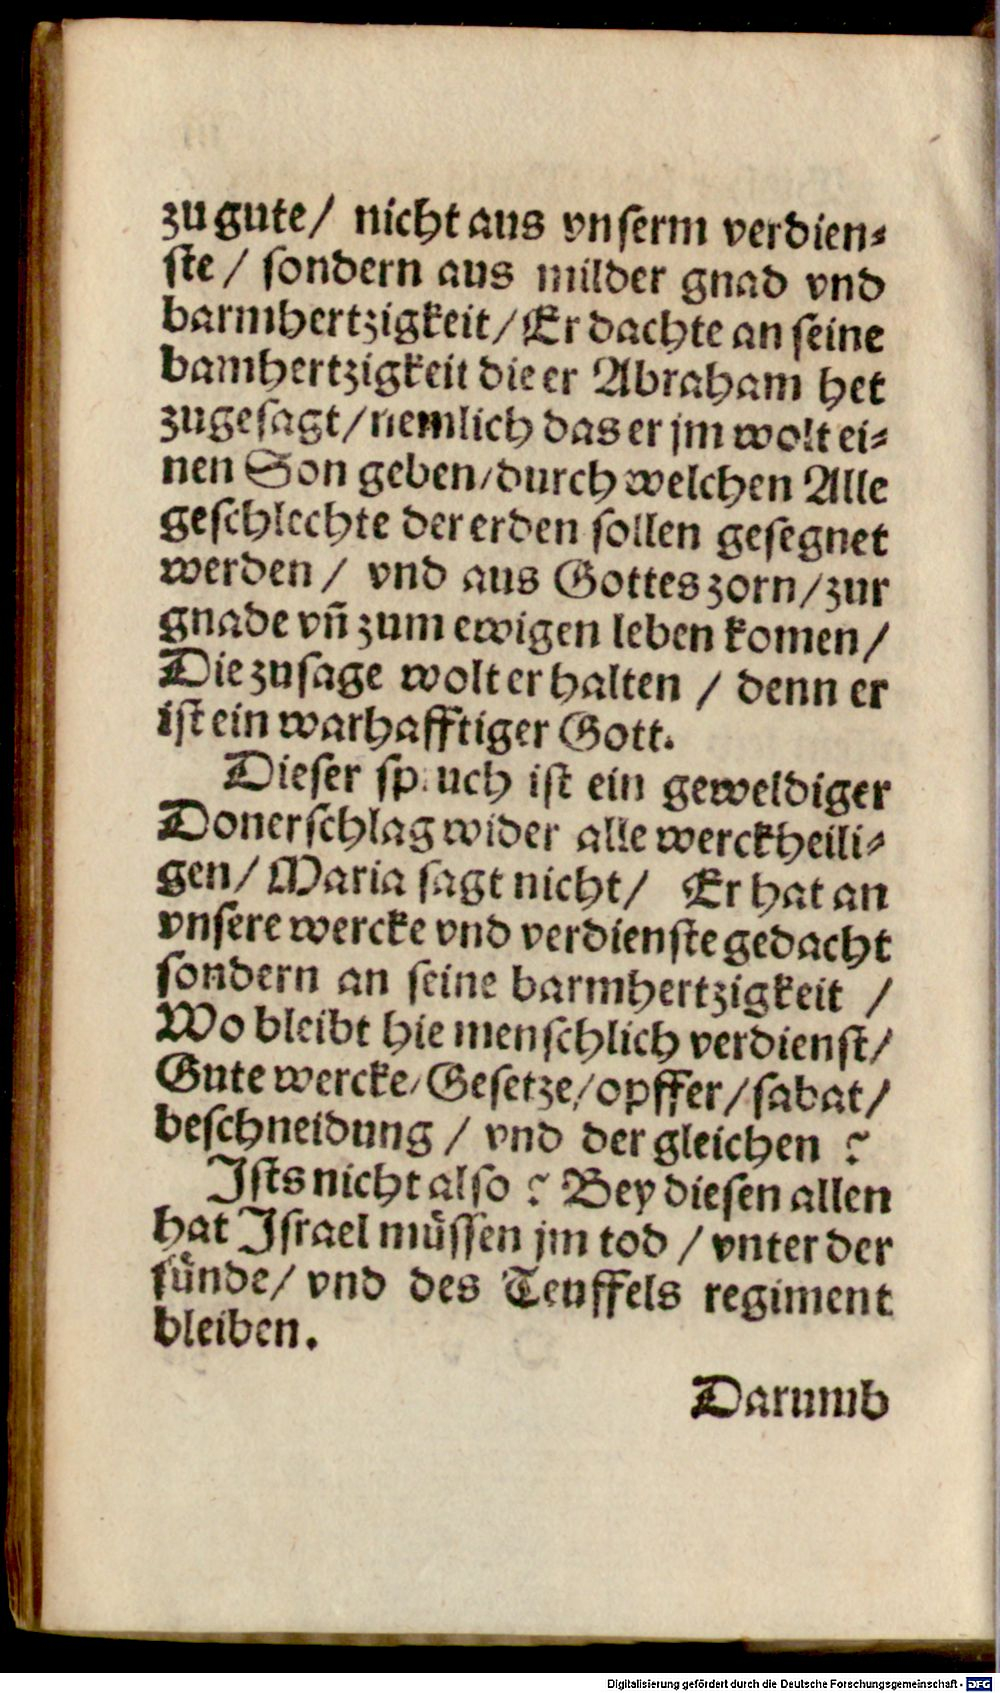 zu gute/ nicht aus vnserm verdien⸗
ste / sondern aus milder gnad vnd
barmhertzigkeit/ Er dachte an seine
bamhertzigkeit die er Abraham het
zugesagt/ nemlich das er jm wolt ei⸗
nen Son geben/ durch welchen Alle
geschlechte der erden sollen gesegnet
werden / vnd aus Gottes zorn/ zur
gnade vn̄ zum ewigen leben komen /
Die zusage wolt er halten / denn er
ist ein warhafftiger Gott.
Dieser spruch ist ein geweldiger
Donerschlag wider alle werckheili⸗
gen/ Maria sagt nicht/ Er hat an
vnsere wercke vnd verdienste gedacht
sondern an seine barmhertzigkeit /
Wo bleibt hie menschlich verdienst/
Gute wercke/ Gesetze/ opffer/ sabat/
beschneidung / vnd der gleichen ?
Ists nicht also ? Bey diesen allen
hat Israel müssen jm tod / vnter der
sünde/ vnd des Teuffels regiment
bleiben.
Darumb
Digitalisierung gefördert durch die Deutsche Forschungsgemeinschaft - DFG